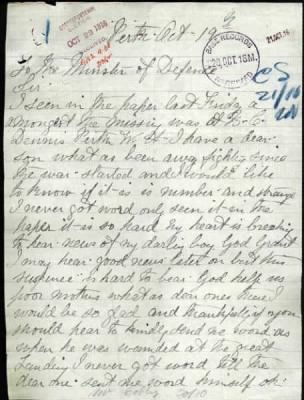 OCT 23 1916
Perth Oct. 19
BASE RECORDS
20 OCT 16 P.M.
RECEIVED
To the Minister of Defence
Sir
I seen in the paper last Friday a
mongst the missing was
Dennis Perth W. A. I have a dear
son what as been away fighting since
the war started and I would like
to know if it is is number and
I never got word only seen it in the
paper it is so hard my heart is breaking
to hear news of my darling boy God Grant
I may hear good news later on but this
suspence is hard to bear God help us
poor mothers what as don one here I
would be so glad and thankful if you
should hear to kindly send me word as
when he was wounded at the great
Landing I never got word till the
dear one sent me word himself oh
20/10